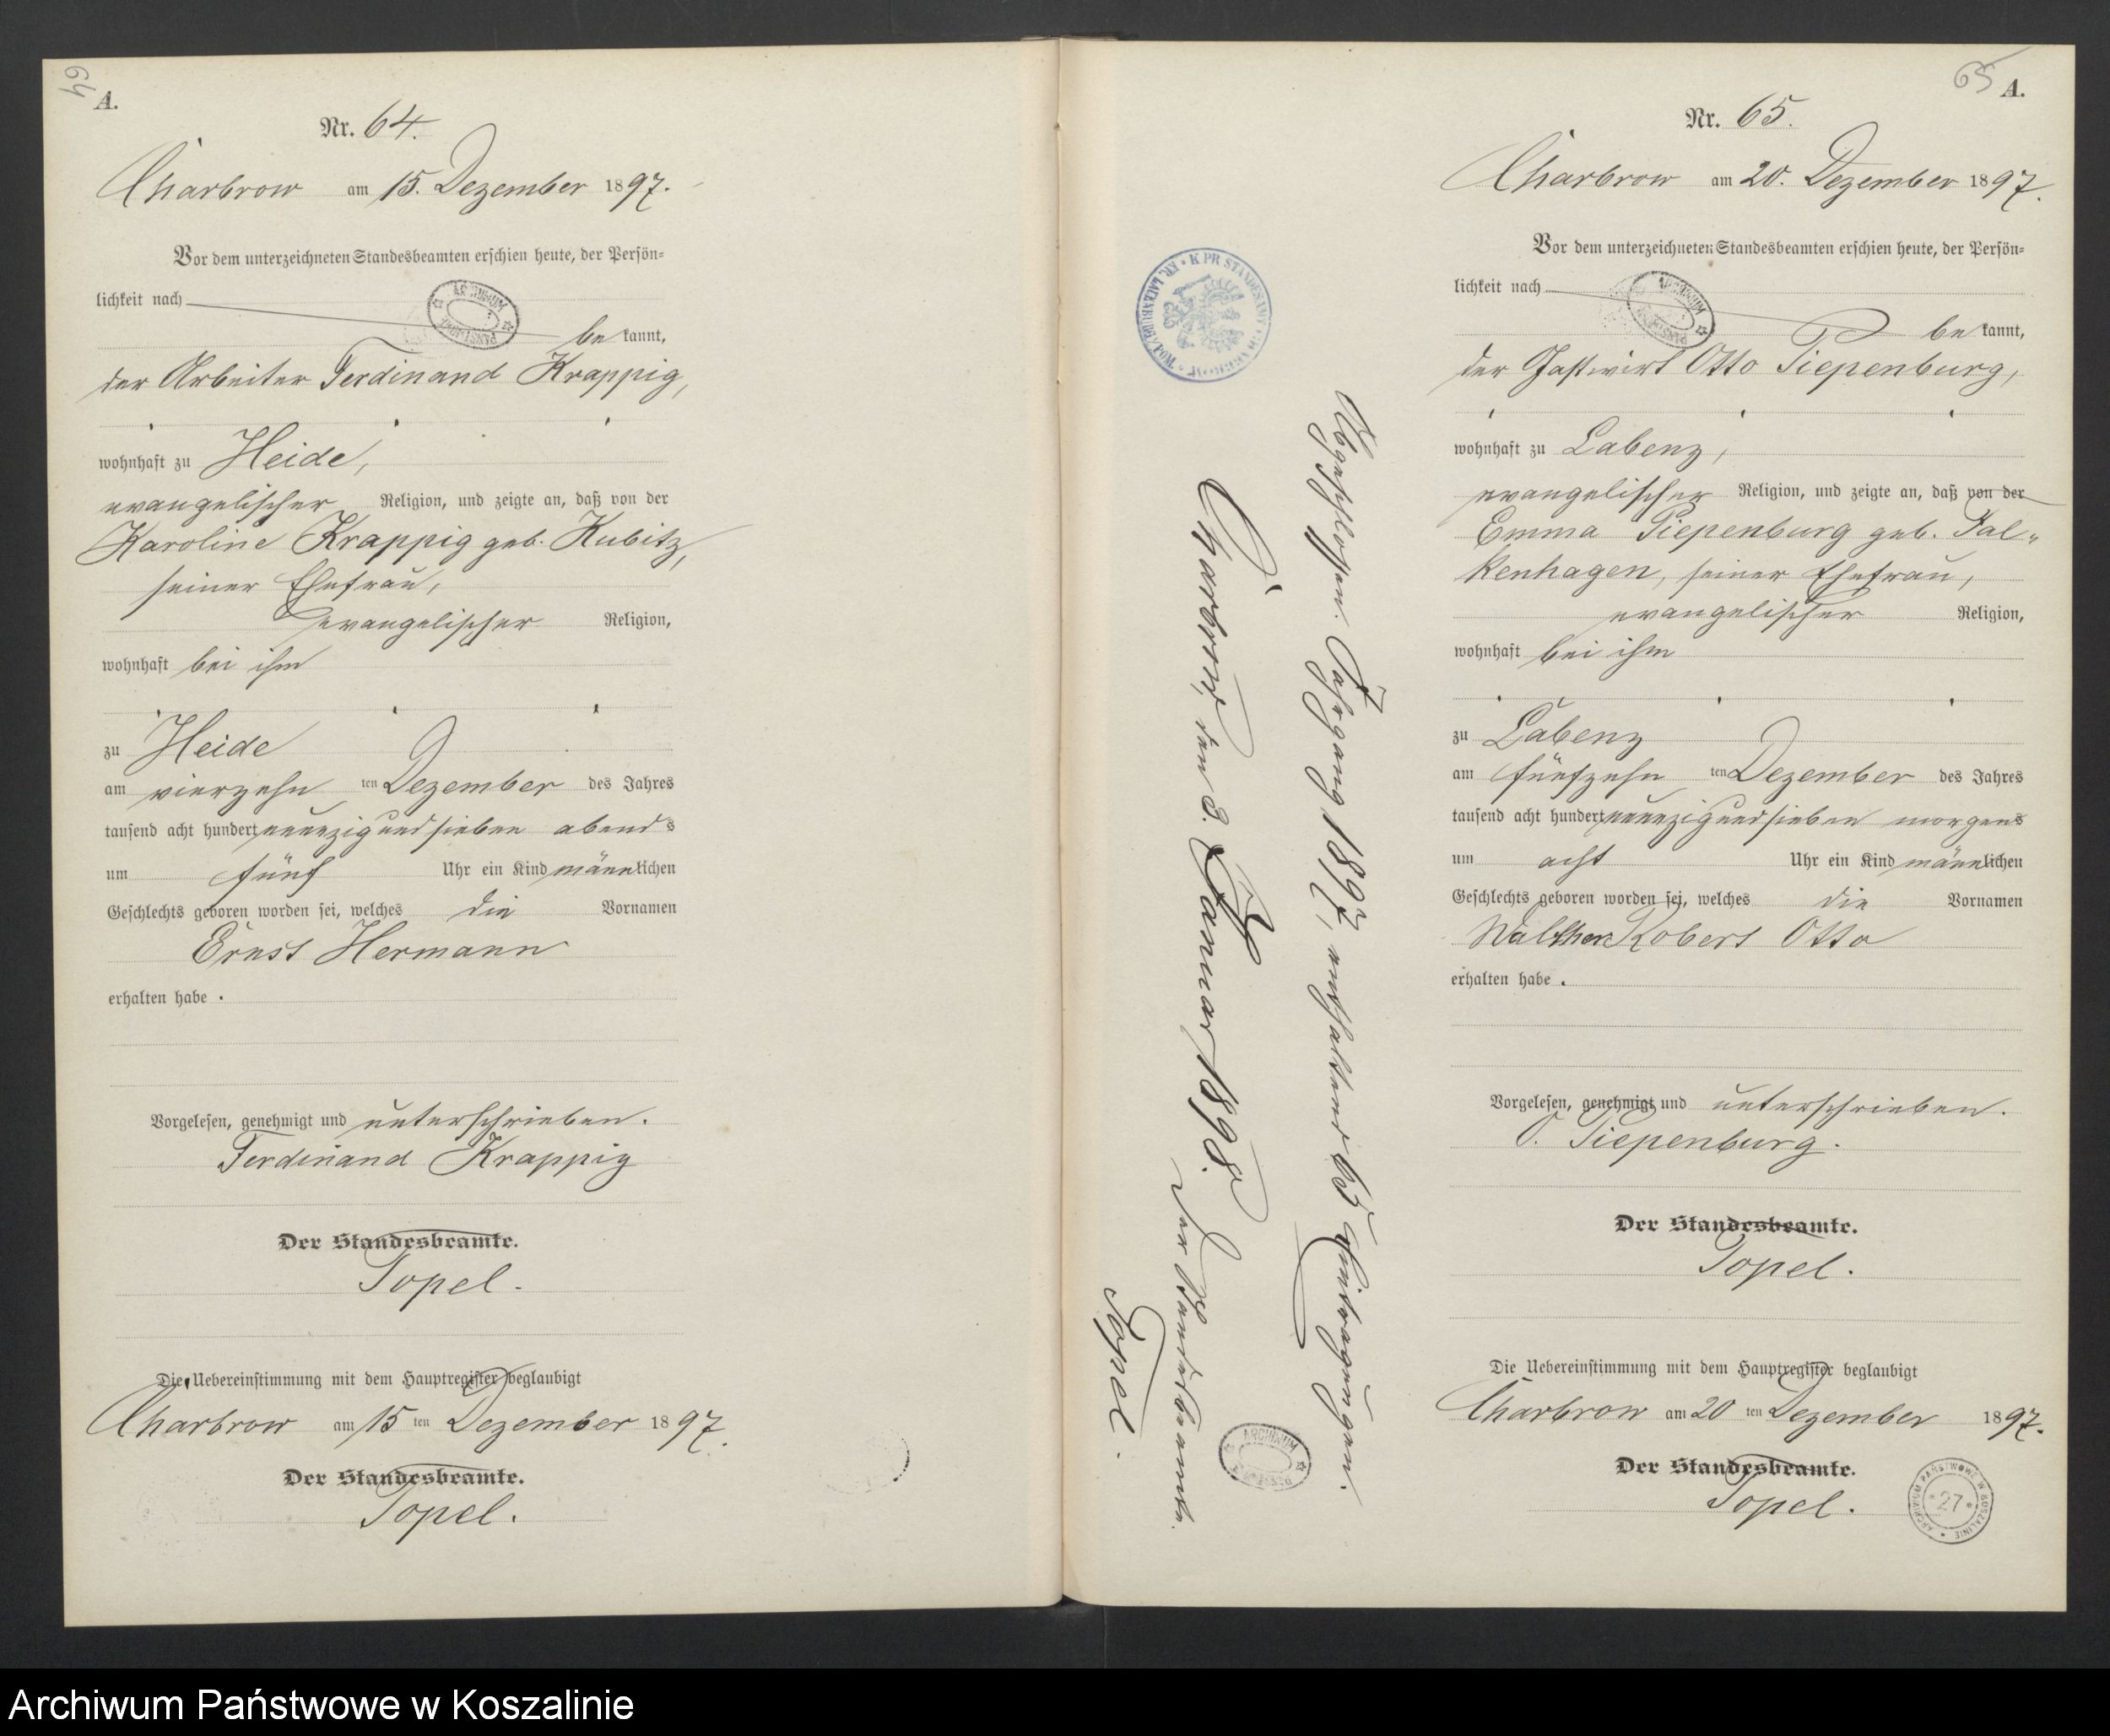 64
A.
Nr. 64.
Charbrow am 15. Dezember 1897.
Vor dem unterzeichneten Standesbeamten erschien heute, der Persön-
lichkeit nach
ARCHIWUM PAŃSTWOWE
be kannt,
der Arbeiter Ferdinand Krappig,
wohnhaft zu Heide,
evangelischer Religion, und zeigte an, daß von der
Karoline Krappig geb. Kubitz,
seiner Ehefrau,
evangelischer Religion,
wohnhaft bei ihm
zu Heide
am vierzehn ten Dezember des Jahres
tausend acht hundert neunzig und sieben abends
um fünf Uhr ein Kind männlichen
Geschlechts geboren worden sei, welches die Vornamen
Ernst Hermann
erhalten habe.
Vorgelesen, genehmigt und unterschrieben.
Ferdinand Krappig
Der Standesbeamte.
Topel.
Die Uebereinstimmung mit dem Hauptregister beglaubigt
Charbrow am 15 ten Dezember 1897.
Der Standesbeamte.
Topel.
Abgeschlossen. Jahrgang 1897, enthaltend 65 Eintragungen.
Charbrow, den 3. Januar 1898.
Der Standesbeamte.
Topel.
65
A.
Nr. 65.
Charbrow am 20. Dezember 1897.
Vor dem unterzeichneten Standesbeamten erschien heute, der Persön-
lichkeit nach
ARCHIWUM
be kannt,
der Gastwirt Otto Piepenburg,
wohnhaft zu Labenz,
evangelischer Religion, und zeigte an, daß von der
Emma Piepenburg geb. Fal-
kenhagen, seiner Ehefrau,
evangelischer Religion,
wohnhaft bei ihm
zu Labenz
am fünfzehn ten Dezember des Jahres
tausend acht hundert neunzig und sieben morgens
um acht Uhr ein Kind männlichen
Geschlechts geboren worden sei, welches die Vornamen
Walther Robert Otto
erhalten habe.
Vorgelesen, genehmigt und unterschrieben.
O. Piepenburg.
Der Standesbeamte.
Topel.
Die Uebereinstimmung mit dem Hauptregister beglaubigt
Charbrow am 20 ten Dezember 1897.
Der Standesbeamte.
Topel.
ARCHIWUM PAŃSTWOWE W KOSZALINIE * 27 *
Archiwum Państwowe w Koszalinie